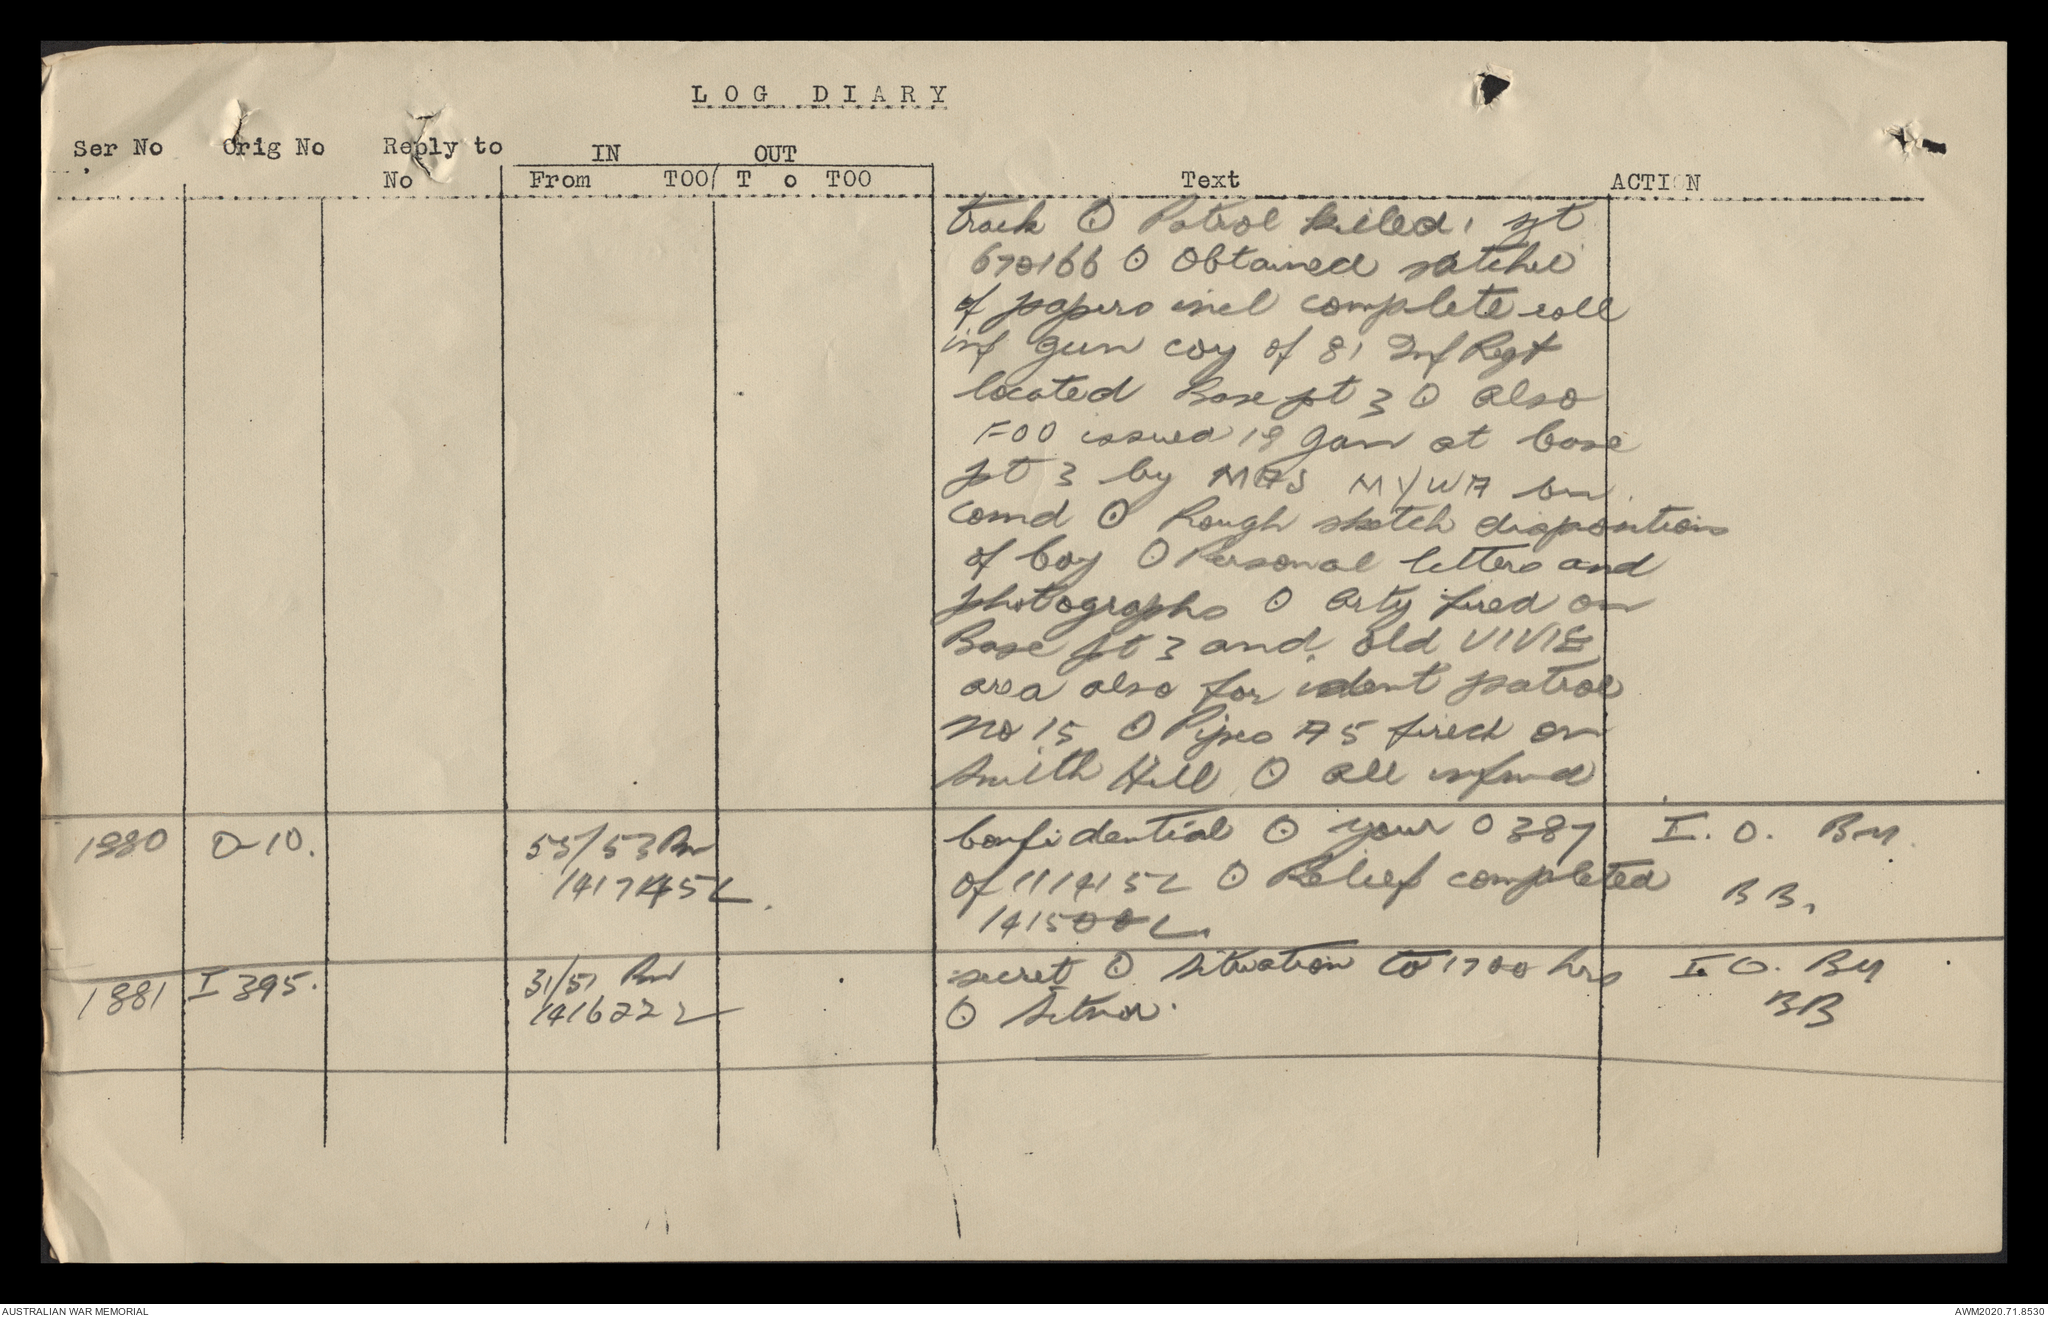 LOG DIARY
Ser No Orig No Reply to No IN OUT
From TOO/ T o TOO Text ACTION
track ⊙ Patrol killed 1 at
670166 ⊙ Obtained satchel
of papers incl complete roll
inf gun coy of 81 Inf Regt
located Base pt 3 ⊙ Also
FOO issued 19 Jan at base
pt 3 by MAJ bn
comd ⊙ Rough sketch dispositions
of Coy ⊙ Personal letters and
photographs ⊙ Arty fired on
Base pt 3 and old VIVIE
area also for ident patrol
No 15 ⊙ Pipes A5 fired on
Smith Hill ⊙ All infmd
1880 O-10. 55/53 Bn Confidential ⊙ your O387 I.O. BM
141745L of 111415L ⊙ Relief completed BB.
141500L.
1881 I 395. 31/51 Bn secret ⊙ Situation to 1700 hrs I.O. BM
141622L ⊙ Sitnor. BB
AUSTRALIAN WAR MEMORIAL AWM2020.71.8530